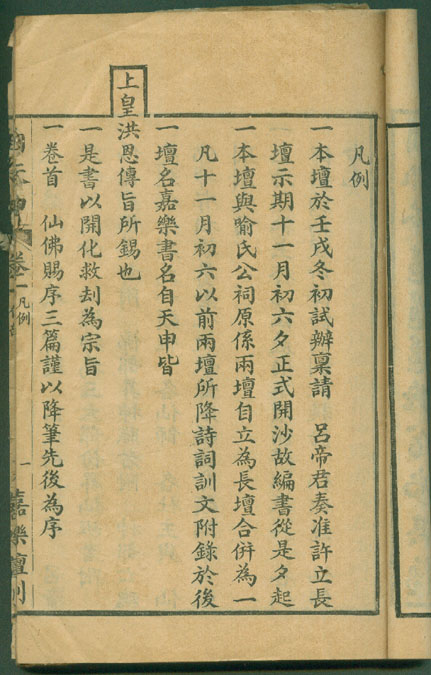 凡例
一本壇於壬戌冬初試辦稟請 呂帝君奏准許立長
壇示期十一月初六夕正式開沙故編書從是夕起
一本壇與喻氏公祠原係兩壇自立為長壇合併為一
凡十一月初六以前兩壇所降詩詞訓文附錄於後
一壇名嘉樂書名自天申皆
上皇洪恩傳旨所錫也
一是書以開化救刦為宗旨
一卷首 仙佛賜序三篇謹以降筆先後為序
卷一 凡例
一
嘉樂壇刊